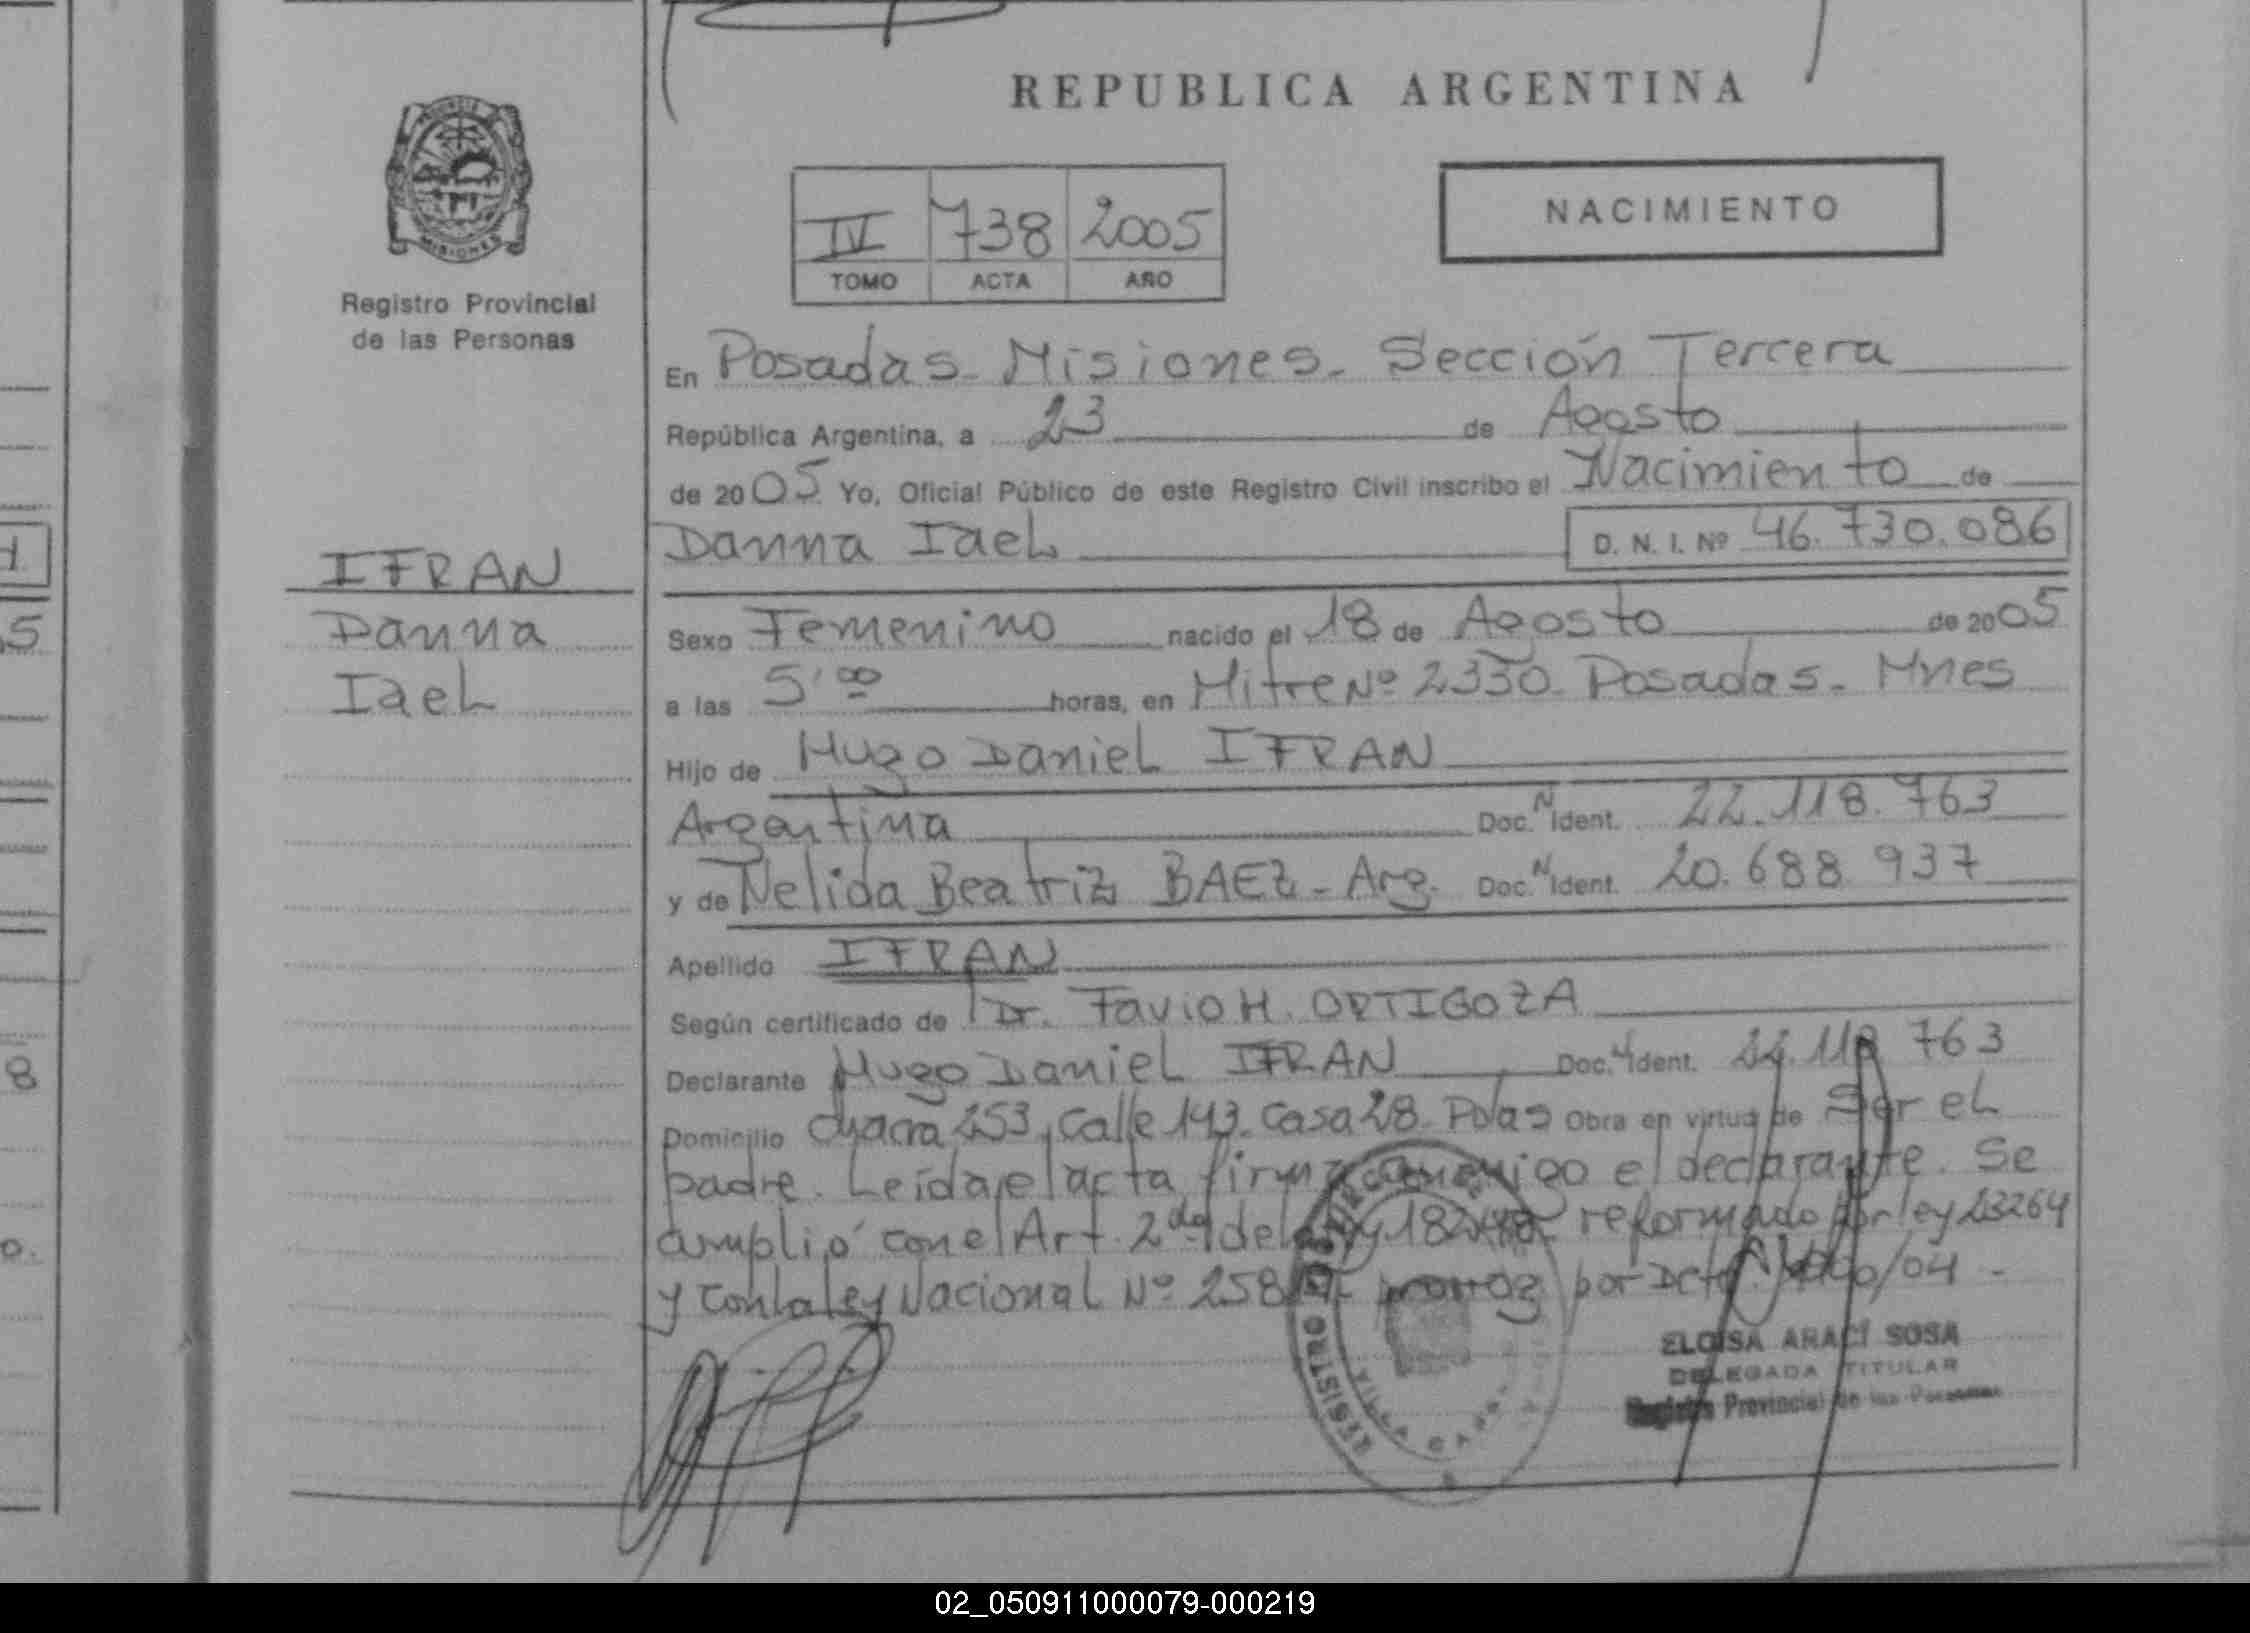 REPUBLICA ARGENTINA
MISIONES
Registro Provincial
de las Personas
IV 738 2005
TOMO ACTA AÑO
NACIMIENTO
En Posadas - Misiones - Sección Tercera
República Argentina, a 23 de Agosto
de 2005 Yo, Oficial Público de este Registro Civil inscribo el Nacimiento de
Danna Iael D. N. I. Nº 46.730.086
IFRAN
Danna
Iael
Sexo Femenino nacido el 18 de Agosto de 2005
a las 5'00 horas, en Mitre Nº 2330 Posadas - Mnes
Hijo de Hugo Daniel IFRAN
Argentina Doc. N Ident. 22.118.763
y de Nelida Beatriz BAEZ - Arg. Doc. N Ident. 20.688.937
Apellido IFRAN
Según certificado de Dr. Favio H. ORTIGOZA
Declarante Hugo Daniel IFRAN Doc. N Ident. 22.118 763
Domicilio Chacra 253, Calle 143. Casa 28. Pdas Obra en virtud de Ser el
padre. Leída el acta firma conmigo el declarante. Se
cumplió con el Art. 2do de la ley 18248 reformado por ley 23264
y con la ley Nacional Nº por /04 -
ELOISA ARACI SOSA
DELEGADA TITULAR
Registro Provincial de las Personas
REGISTRO
VILLA CABE
1
5
8
o.
02_050911000079-000219